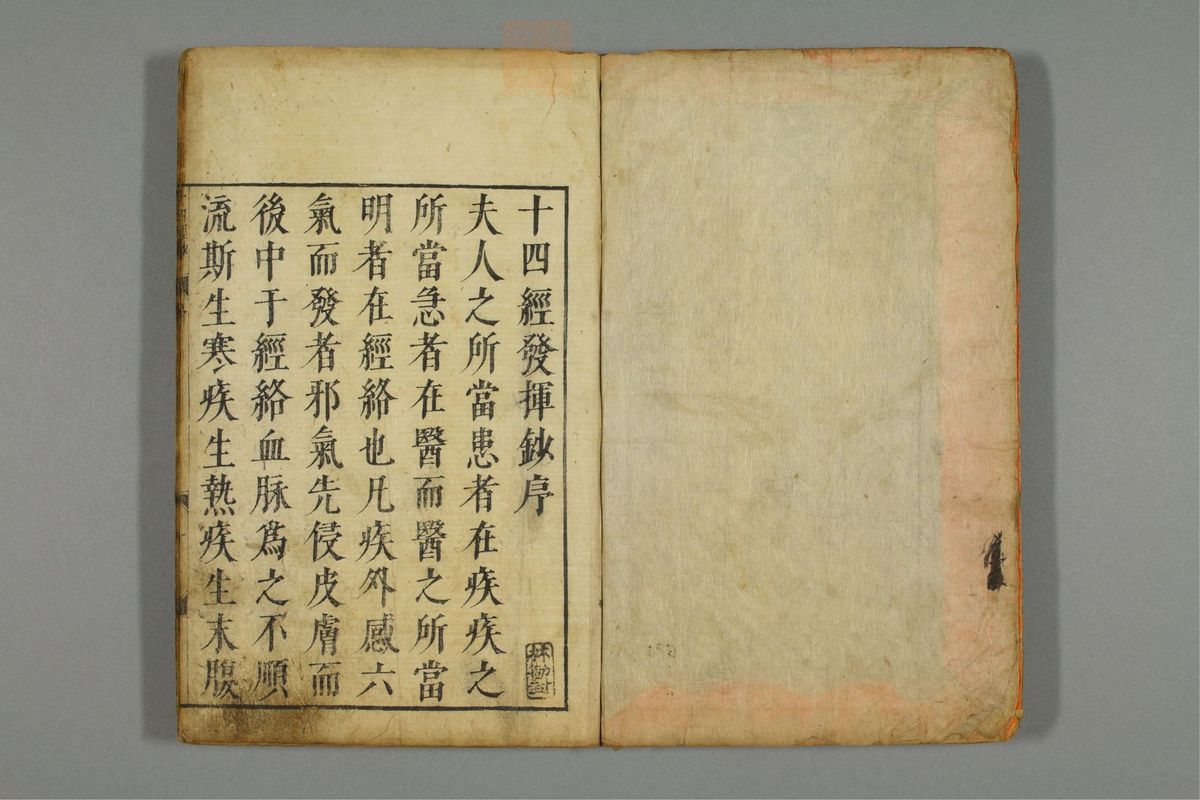 十四經發揮鈔序
夫人之所當患者在疾疾之
所當急者在醫而醫之所當
明者在經絡也凡疾外感六
氣而發者邪氣先侵皮膚而
後中于經絡血脉爲之不順
流斯生寒疾生熱疾生末腹